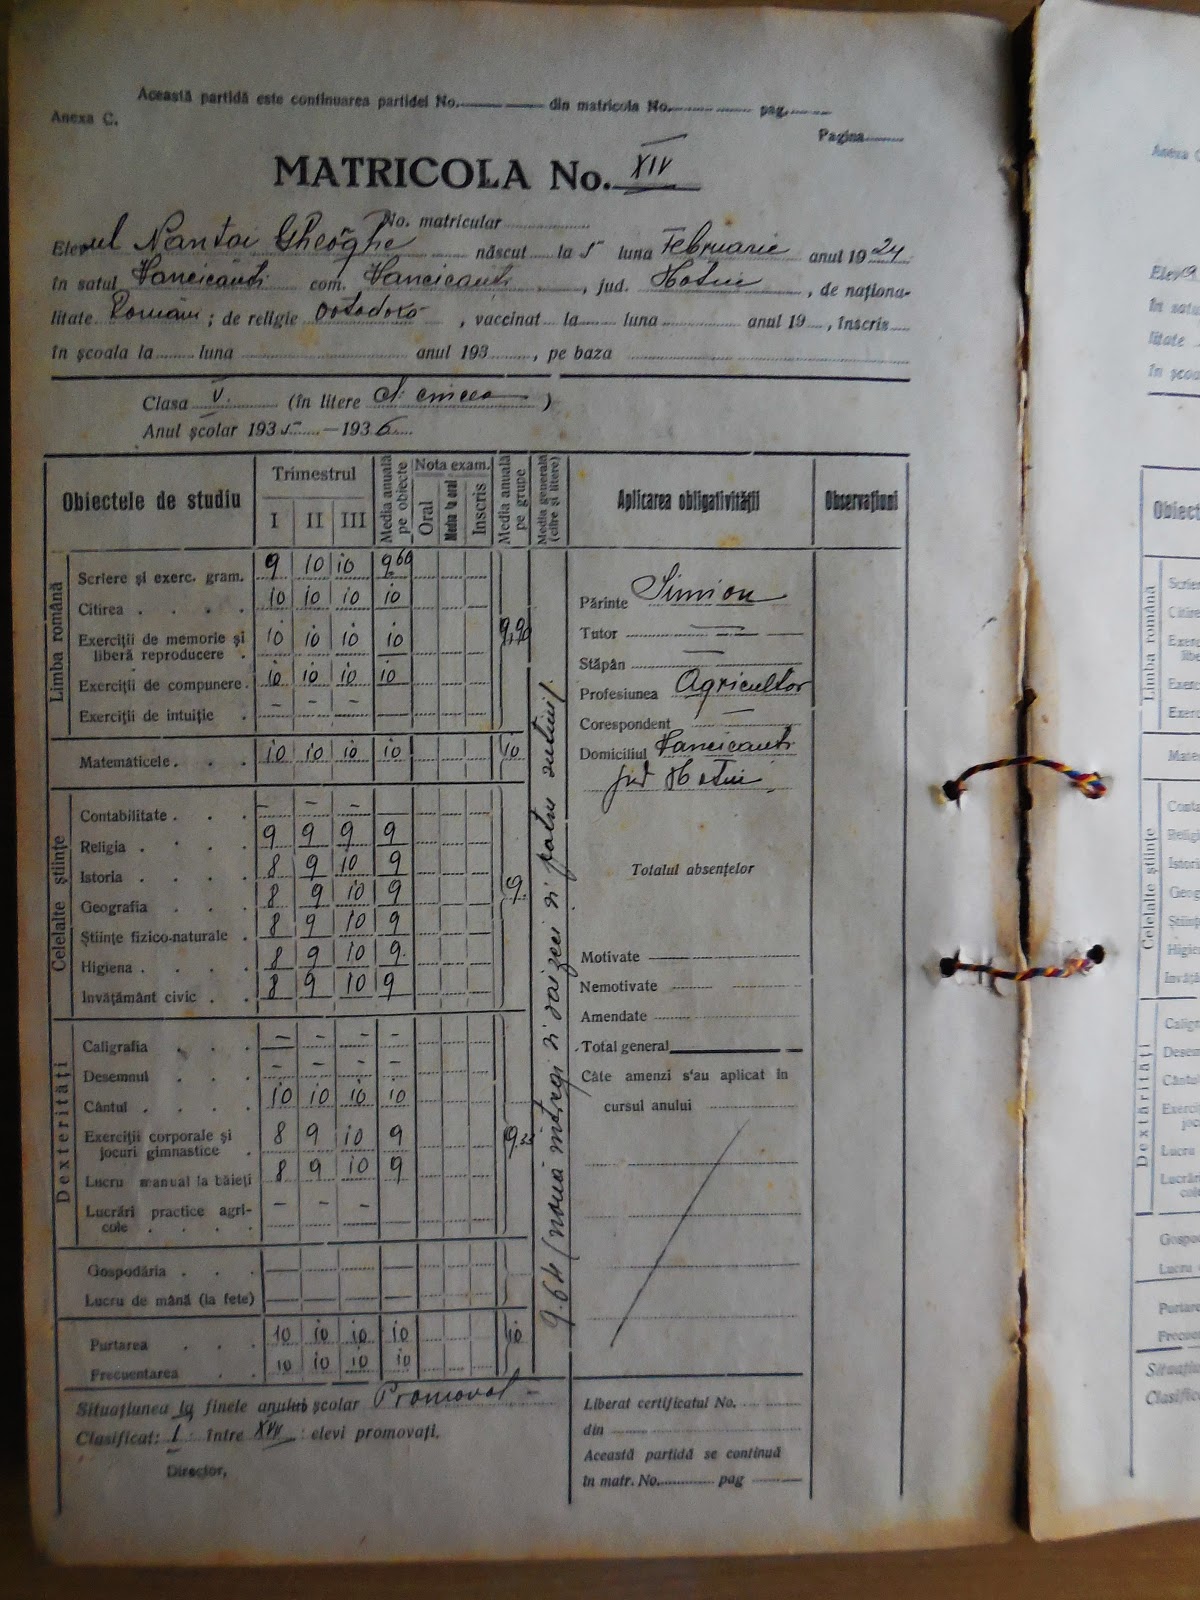 Această partidă este continuarea partidei No. din matricola No. pag.
Anexa C.
Pagina
MATRICOLA No. XIV
No. matricular
Elevul Nantoi Gheoghe născut la 5 luna Februarie anul 1924
în satul Hancicauti com. Hancicauti, jud. Hotin, de naționa-
litate Român; de religie ortodoxa, vaccinat la luna anul 19 , înscris
în școala la luna anul 193 , pe baza
Clasa V. (în litere cl. cincea)
Anul școlar 1935—1936
Obiectele de studiu Trimestrul I II III Media anuală pe obiecte Nota exam. Oral Media la oral Inscris Media anuală pe grupe Media generală (cifre și litere) Aplicarea obligativității Observațiuni
Limba română
Scriere și exerc. gram. 9 10 10 9.60
Citirea 10 10 10 10
Exerciții de memorie și liberă reproducere 10 10 10 10 9,90
Exerciții de compunere 10 10 10 10
Exerciții de intuiție – – –
Matematicele 10 10 10 10 10
Celelalte științe
Contabilitate – – –
Religia 9 9 9 9
Istoria 8 9 10 9
Geografia 8 9 10 9 9
Științe fizico-naturale 8 9 10 9
Higiena 8 9 10 9
Invățământ civic 8 9 10 9
Dexterități
Caligrafia – – – –
Desemnul – – – –
Cântul 10 10 10 10
Exerciții corporale și jocuri gimnastice 8 9 10 9 9.33
Lucru manual la băieți 8 9 10 9
Lucrări practice agricole – – –
Gospodăria
Lucru de mână (la fete)
Purtarea 10 10 10 10 10
Frecuentarea 10 10 10 10
9.64 (nouă intregi si saizeci si patru sutimi)
Situațiunea la finele anului școlar Promovat –
Clasificat: I între XVII elevi promovați.
Director,
Părinte Simion
Tutor
Stăpân
Profesiunea Agricultor
Corespondent
Domiciliul Hancicauti
jud Hotin
Totalul absențelor
Motivate
Nemotivate
Amendate
Total general
Câte amenzi s'au aplicat în
cursul anului
Liberat certificatul No.
din
Această partidă se continuă
în matr. No. pag